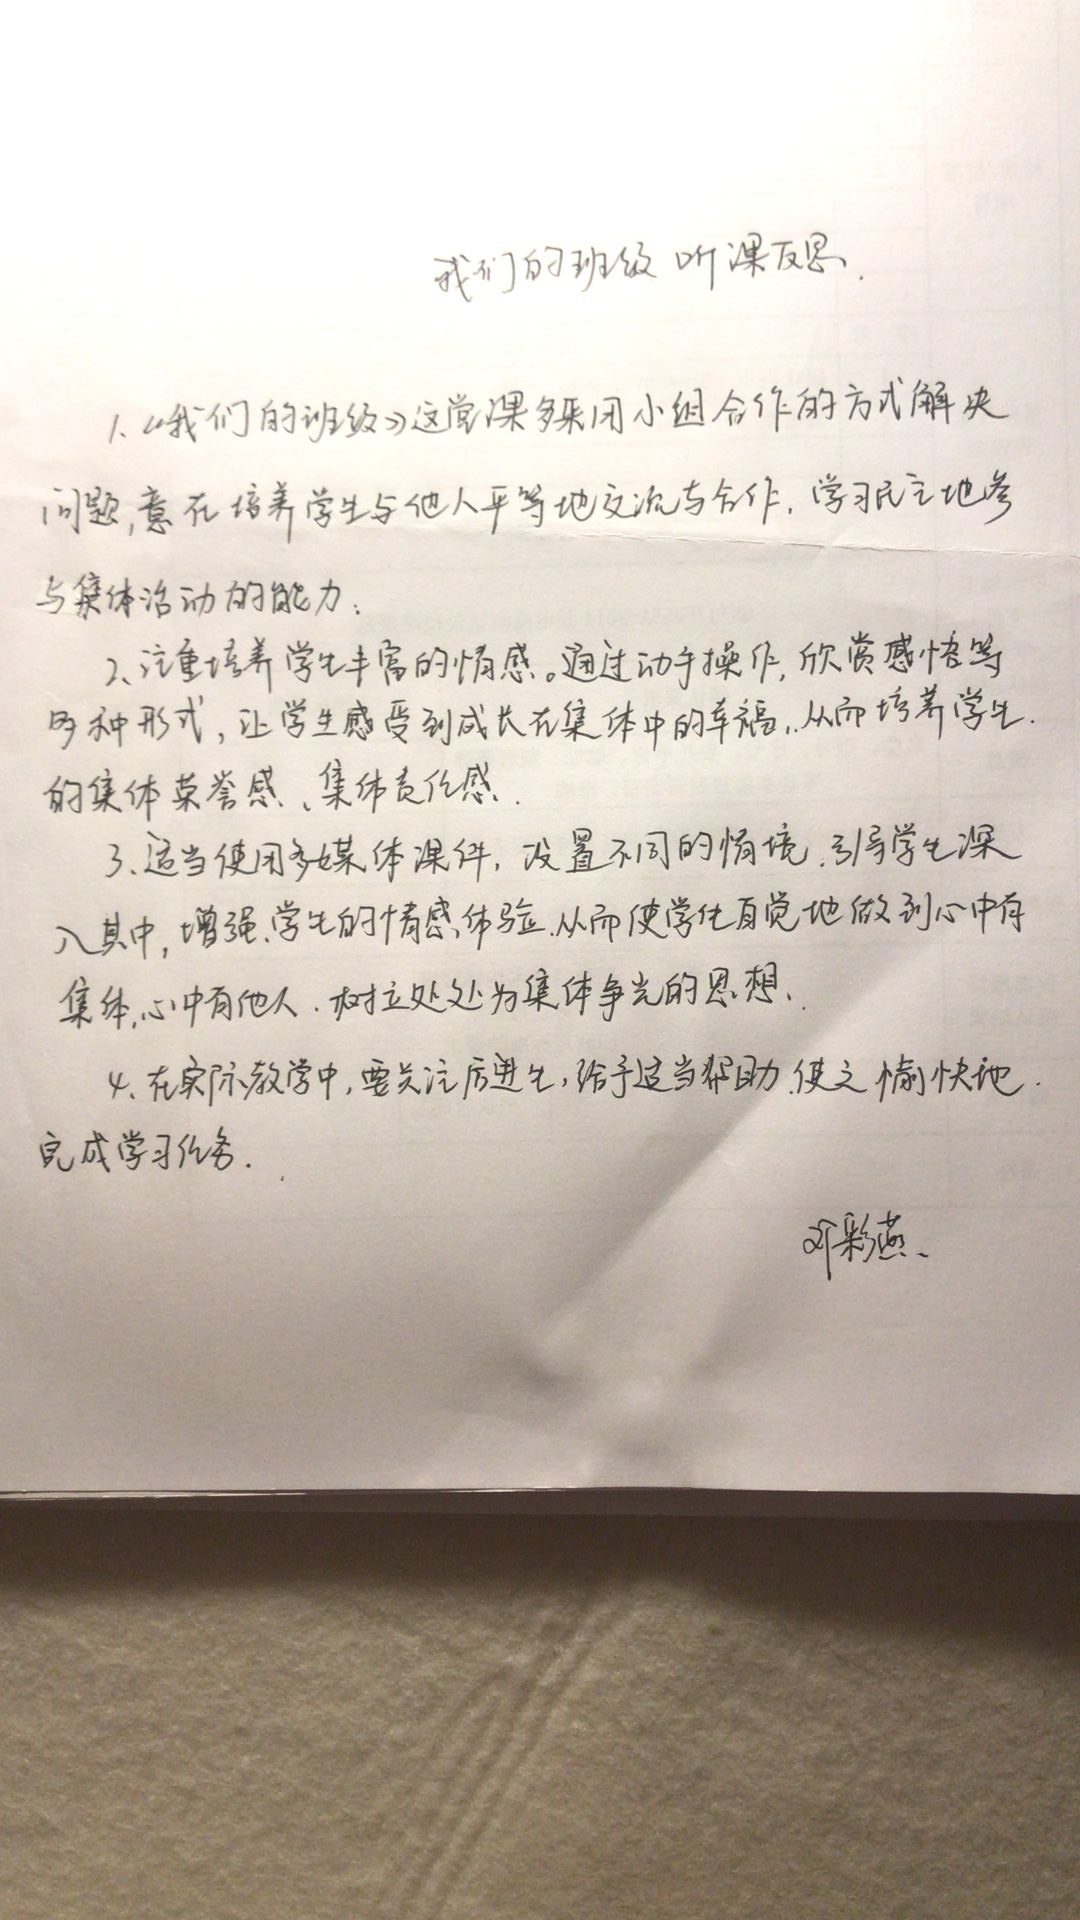 我们的班级 听课反思.
1、《我们的班级》这堂课多采用小组合作的方式解决
问题,意在培养学生与他人平等地交流与合作,学习民主地参
与集体活动的能力.
2、注重培养学生丰富的情感。通过动手操作,欣赏感悟等
多种形式,让学生感受到成长在集体中的幸福,从而培养学生
的集体荣誉感、集体责任感.
3、适当使用多媒体课件,设置不同的情境,引导学生深
入其中,增强学生的情感体验.从而使学生自觉地做到心中有
集体,心中有他人.树立处处为集体争光的思想.
4、在实际教学中,要关注后进生,给予适当帮助,使之愉快地
完成学习任务.
邓彩燕.